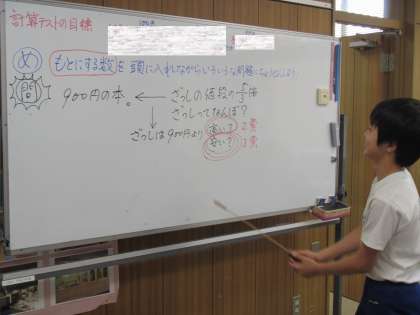 計算テストの目標
め もとにする数を頭に入れながらいろいろな問題にちょうせんしよう
問 900円の本。 ← ざっしの値段の
倍
ざっしってなんぼ?
↓
ざっしは900円より 高い? 2票
安い? 1票